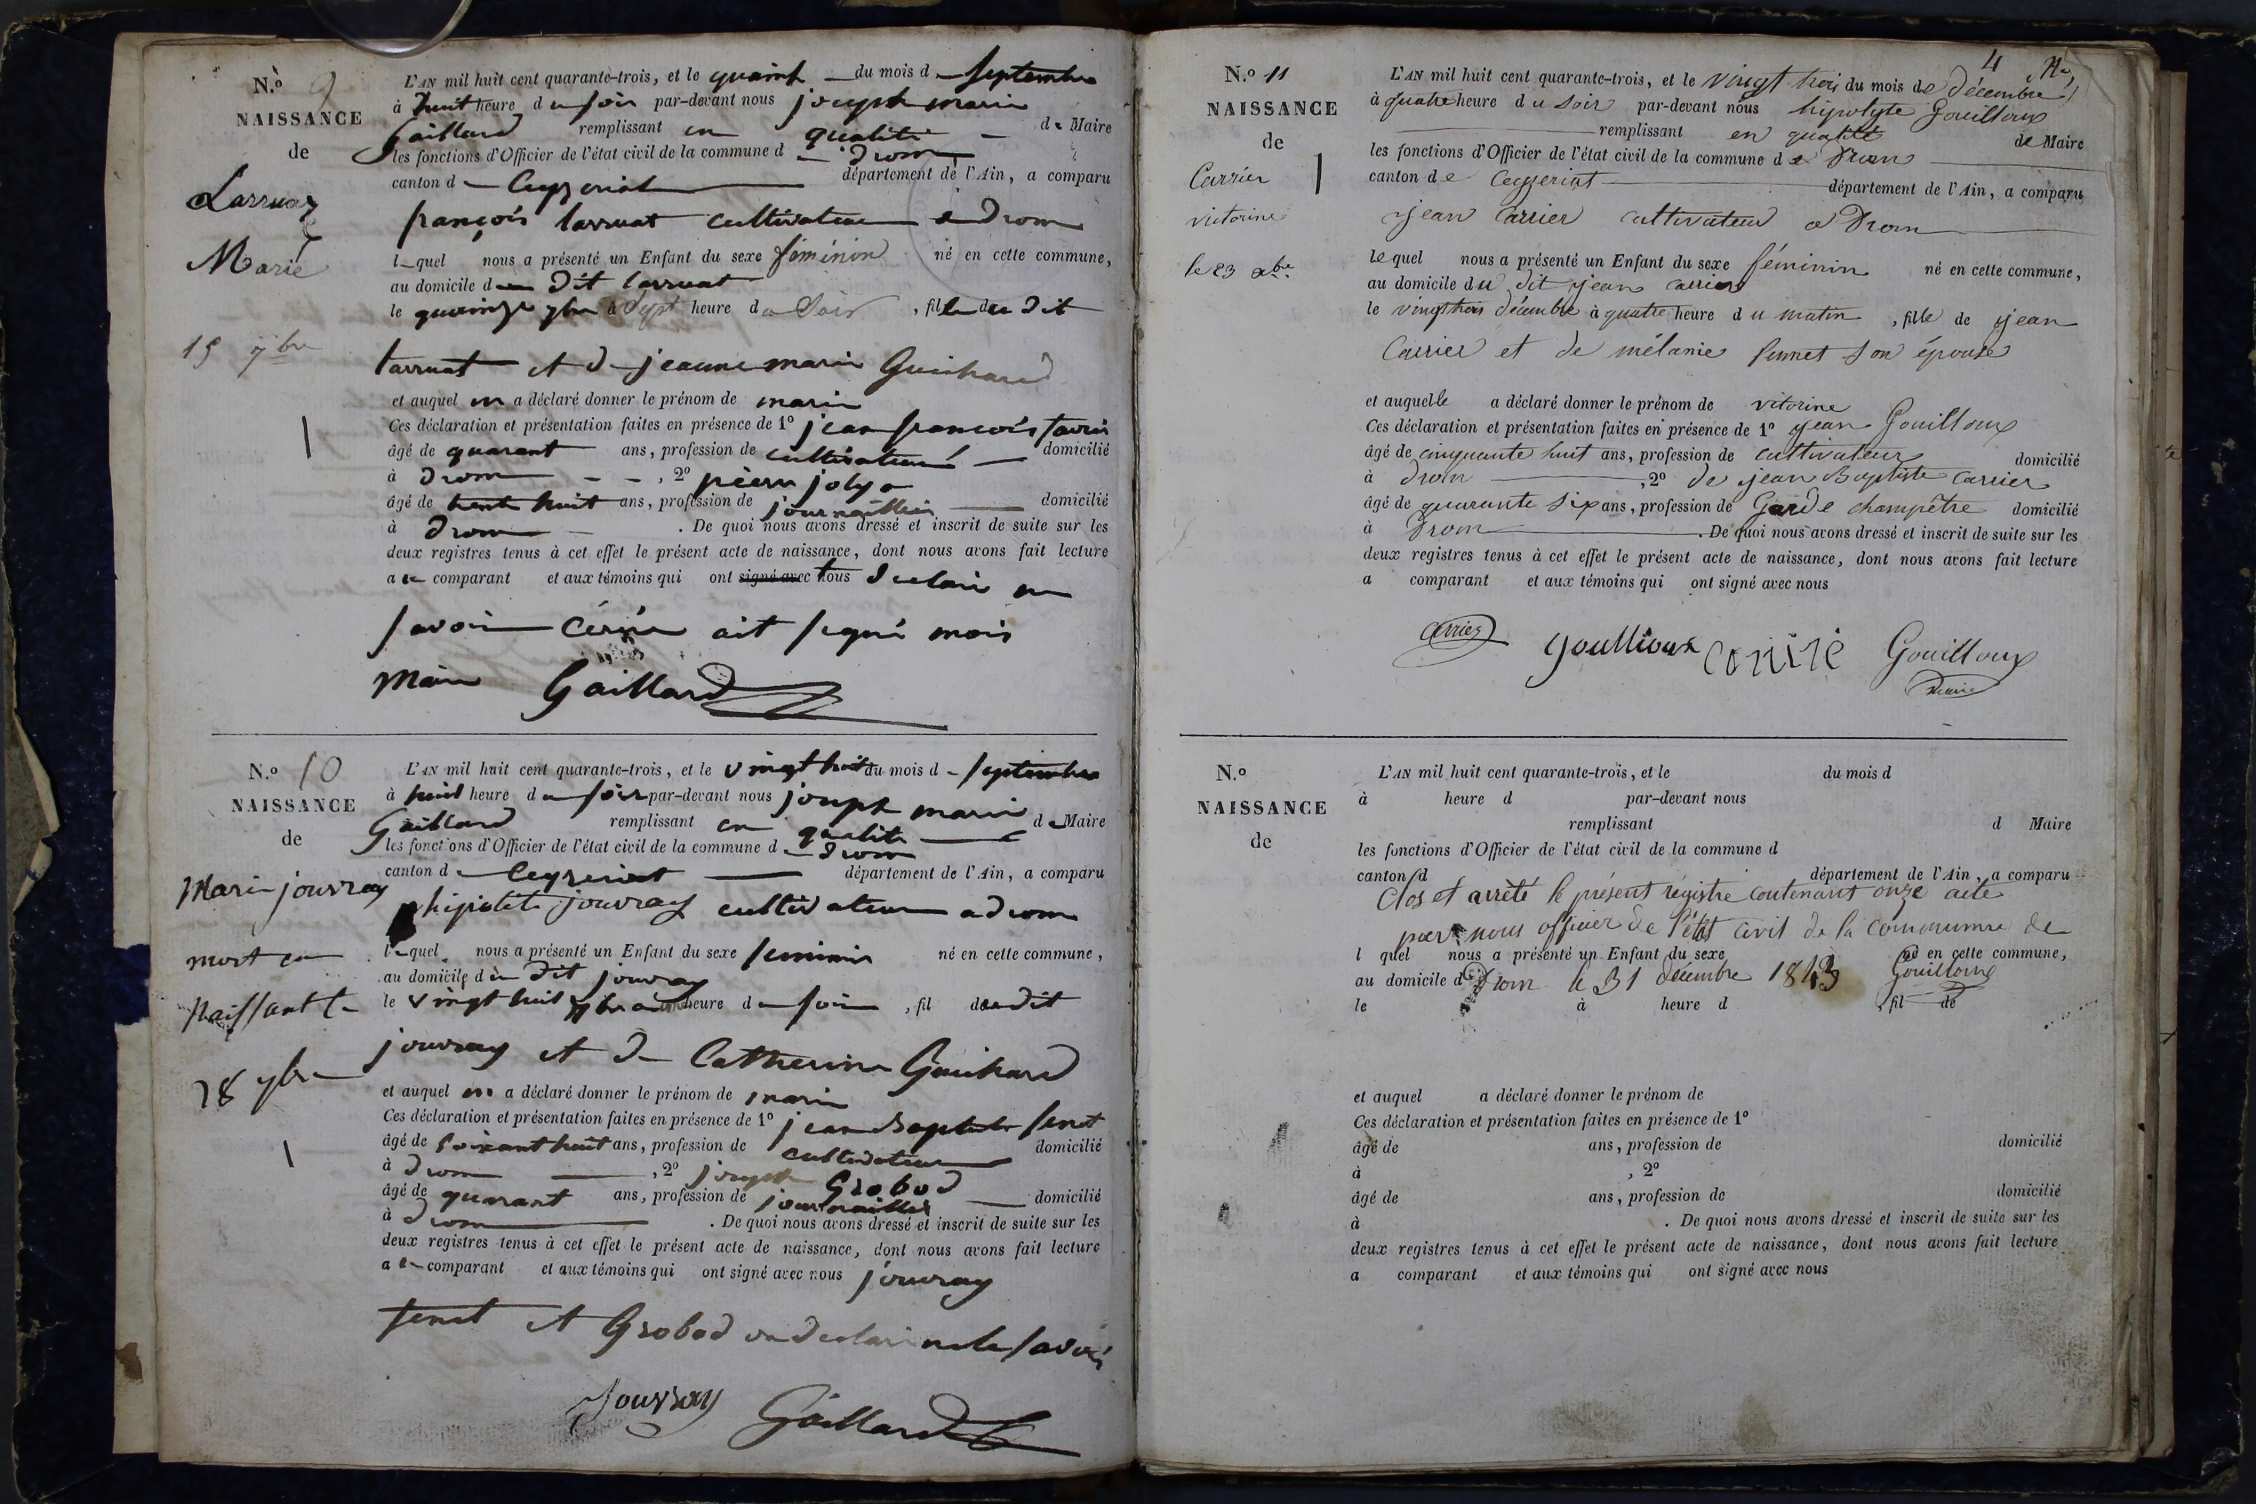 N.º 9
NAISSANCE
de
Larruaz
Marie
15 7bre
L'AN mil huit cent quarante-trois, et le quainze du mois d septembre
à huit heure du soir par-devant nous joseph marie
Gaillard remplissant en qualité de Maire
les fonctions d'Officier de l'état civil de la commune d drom
canton d Ceyzeriat département de l'Ain, a comparu
françois larruat cultivateur a drom
l quel nous a présenté un Enfant du sexe féminin né en cette commune,
au domicile du dit larruat
le quainze 7bre à sept heure du soir, fille du dit
larruat et de jeanne marie Guichard
et auquel on a déclaré donner le prénom de marie
Ces déclaration et présentation faites en présence de 1º jean françois
âgé de quarant ans, profession de cultivateur domicilié
à drom, 2º pierre joly
âgé de trente huit ans, profession de journaillier domicilié
à drom. De quoi nous avons dressé et inscrit de suite sur les
deux registres tenus à cet effet le présent acte de naissance, dont nous avons fait lecture
a u comparant et aux témoins qui ont signé avec nous declare ne
savoir ait signé mois
Maire Gaillard
N.º 10
NAISSANCE
de
Marie jouvray
mort en
Naissant le
28 7bre
L'AN mil huit cent quarante-trois, et le vingt huit du mois d septembre
à huit heure du soir par-devant nous joseph marie
Gaillard remplissant en qualité de Maire
les fonctions d'Officier de l'état civil de la commune d drom
canton d Ceyzeriat département de l'Ain, a comparu
hipolite jouvray cultivateur a drom
lequel nous a présenté un Enfant du sexe feminin né en cette commune,
au domicile du dit jouvray
le vingt huit 7bre a heure du soir, fil du dit
jouvray et de Catherine Guichard
et auquel on a déclaré donner le prénom de marie
Ces déclaration et présentation faites en présence de 1º jean Baptiste fenet
âgé de soixant huit ans, profession de cultivateur domicilié
à drom, 2º joseph Grobod
âgé de quarant ans, profession de journaillier domicilié
à drom. De quoi nous avons dressé et inscrit de suite sur les
deux registres tenus à cet effet le présent acte de naissance, dont nous avons fait lecture
a u comparant et aux témoins qui ont signé avec nous jouvray
fenet et Grobod on declare ne le savoir
Jouvray Gaillard
4
N.º 11
NAISSANCE
de
Carrier
victorine
le 23 xbre
L'AN mil huit cent quarante-trois, et le vingt trois du mois de décembre
à quatre heure du soir par-devant nous hipolyte Gouilloux
remplissant en qualité de Maire
les fonctions d'Officier de l'état civil de la commune de Drom
canton de Ceyzeriat département de l'Ain, a comparu
jean Carrier cultivateur a Drom
lequel nous a présenté un Enfant du sexe féminin né en cette commune,
au domicile du dit jean carrier
le vingt trois décembre à quatre heure du matin, fille de jean
Carrier et de mélanie funet son épouse
et auquelle a déclaré donner le prénom de vitorine
Ces déclaration et présentation faites en présence de 1º jean Gouilloux
âgé de cinquante huit ans, profession de cultivateur domicilié
à drom, 2º de jean Baptiste Carrier
âgé de quarante six ans, profession de Garde champêtre domicilié
à Drom. De quoi nous avons dressé et inscrit de suite sur les
deux registres tenus à cet effet le présent acte de naissance, dont nous avons fait lecture
a comparant et aux témoins qui ont signé avec nous
Carrier Goullioux Carrié Gouilloux
maire
N.º
NAISSANCE
de
L'AN mil huit cent quarante-trois, et le du mois d
à heure d par-devant nous
remplissant d Maire
les fonctions d'Officier de l'état civil de la commune d
canton d département de l'Ain, a comparu
Clos et arrêté le présent régistre contenant onze acte
par nous officier de l'état civil de la commune de
l quel nous a présenté un Enfant du sexe né en cette commune,
au domicile d Drom le 31 décembre 1843 Gouilloux
le à heure d, fil de
et auquel a déclaré donner le prénom de
Ces déclaration et présentation faites en présence de 1º
âgé de ans, profession de domicilié
à, 2º
âgé de ans, profession de domicilié
à. De quoi nous avons dressé et inscrit de suite sur les
deux registres tenus à cet effet le présent acte de naissance, dont nous avons fait lecture
a comparant et aux témoins qui ont signé avec nous